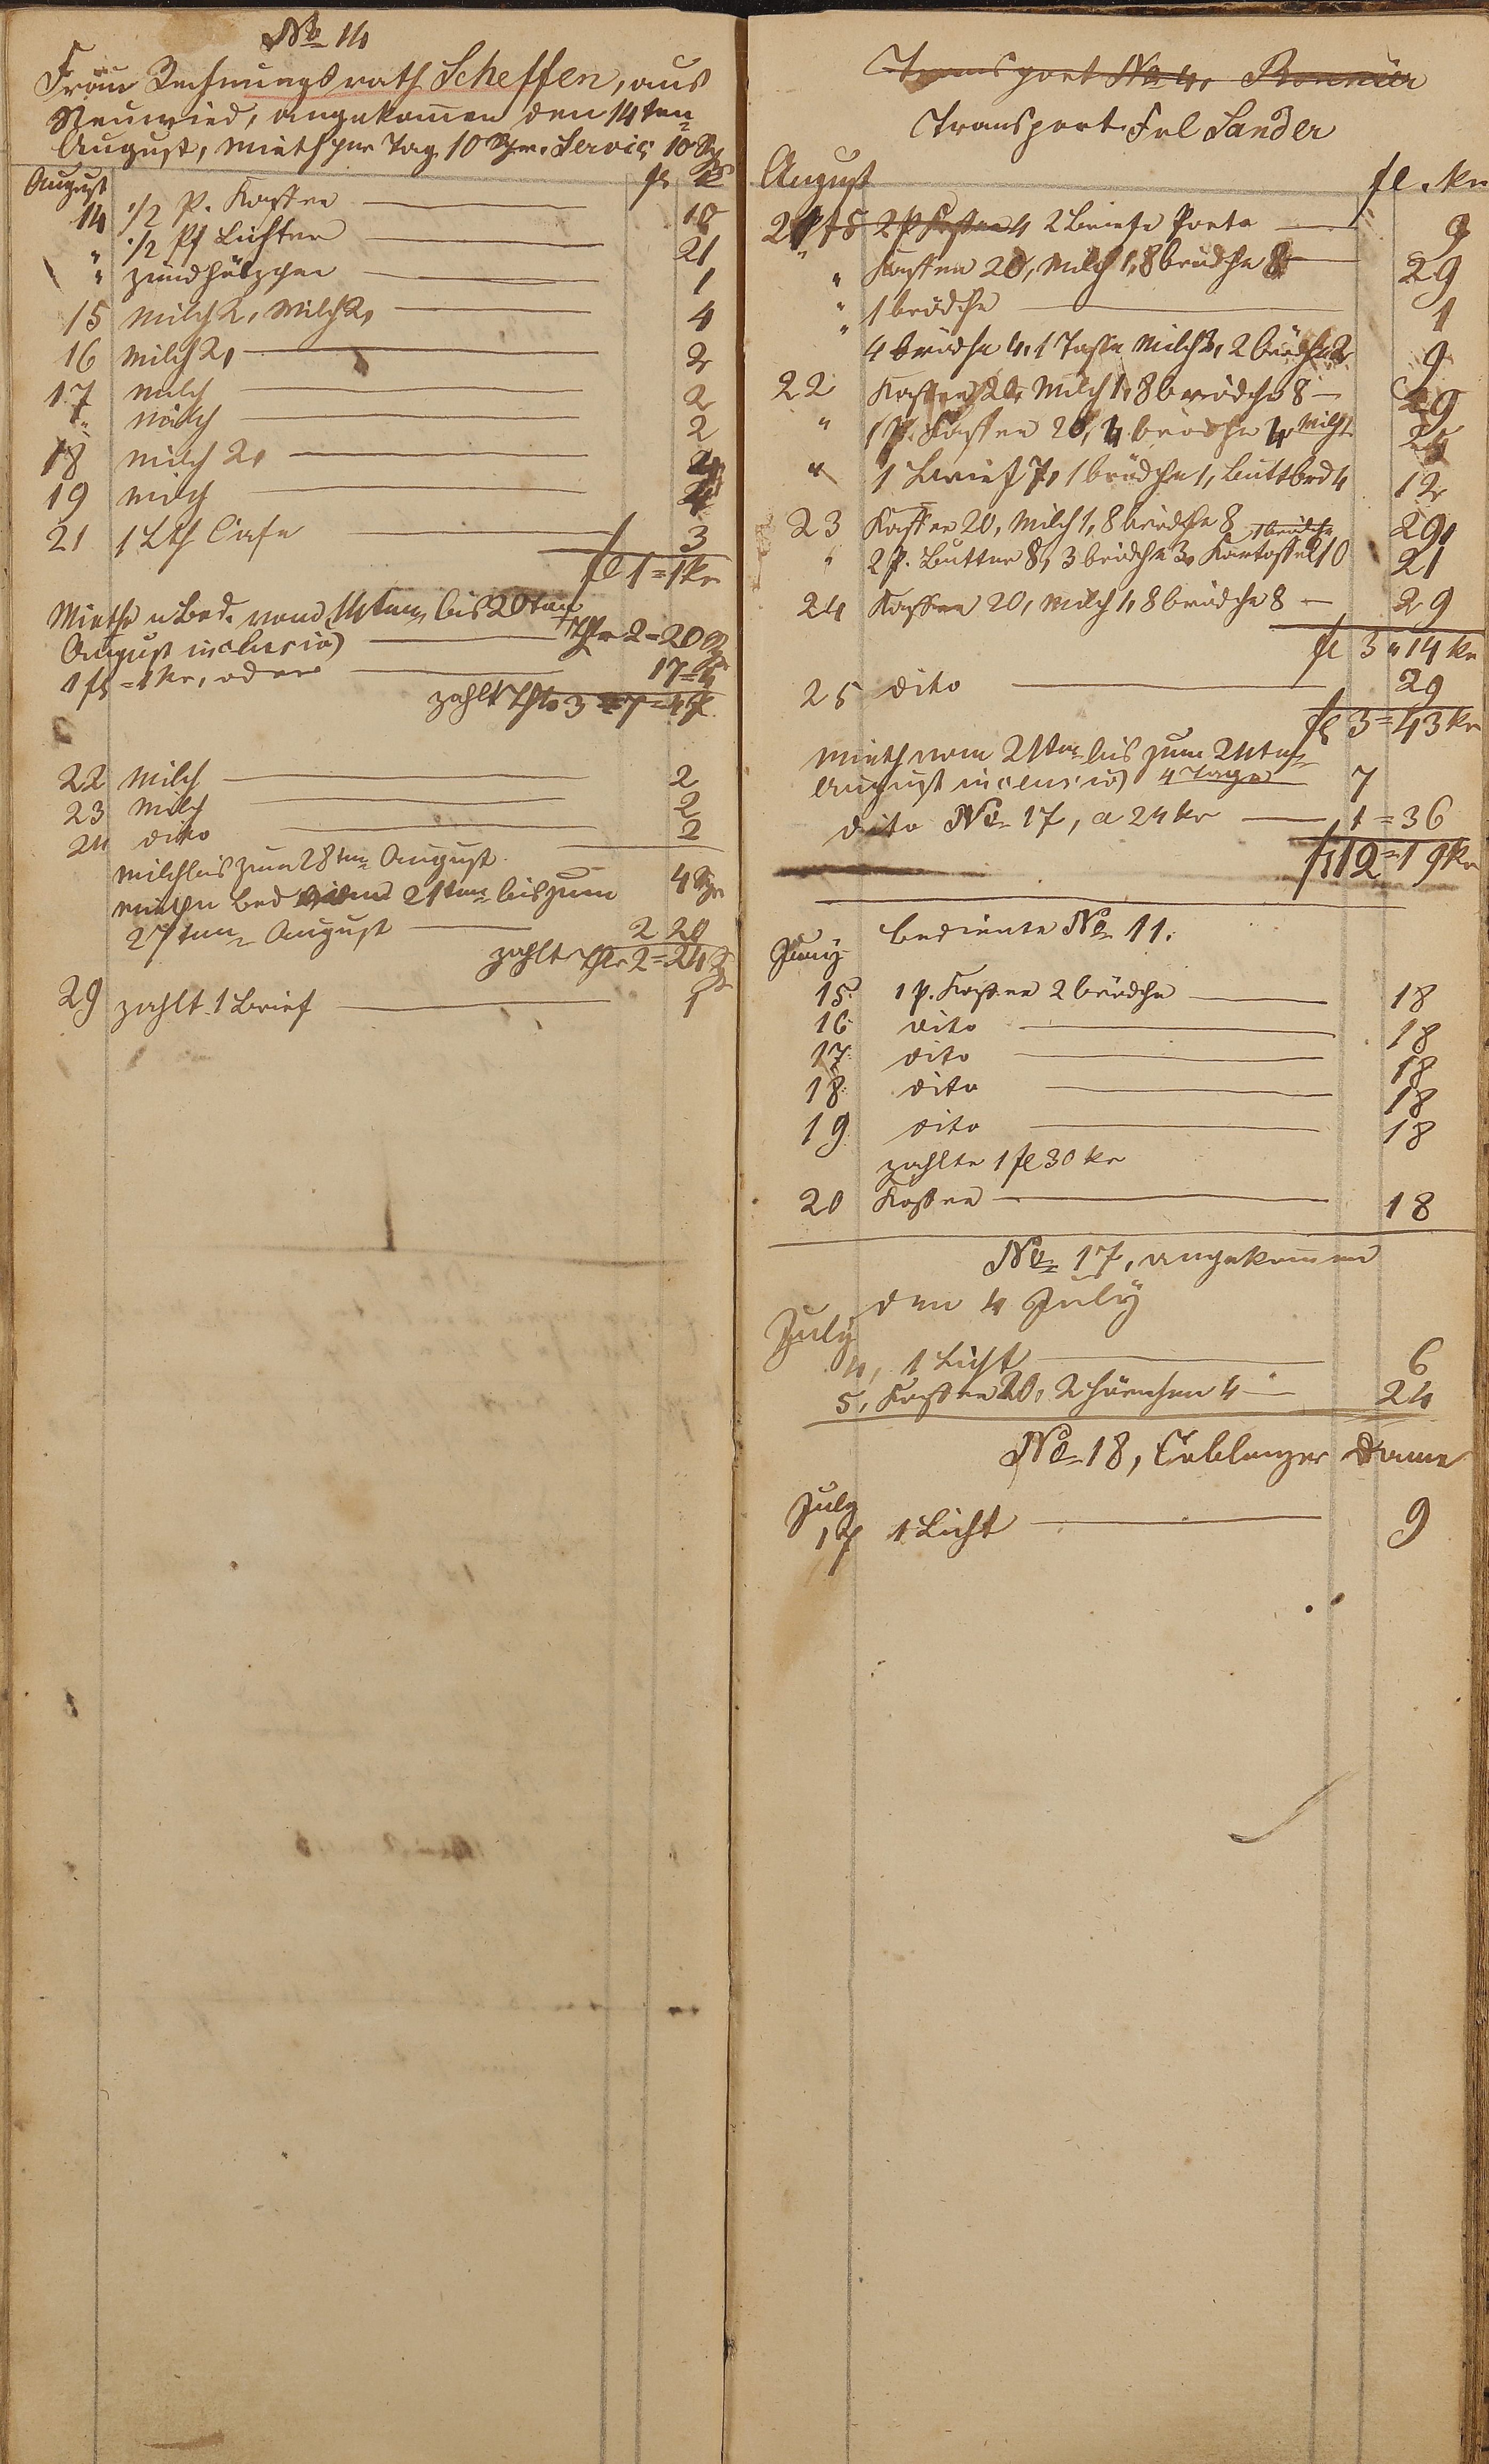 No 14
Frau Rechnungsrath Scheffen, aus
Neuwied, angekommen den 14ten
August, Mieth per Tag 10 Sgr. Servis 10 Sg
August fl kr
14 1/2 P. Kaffee 18
" 1/2 Pf Lichter 21
" Zündhölzger 1
15 Milch 2, Milch 2, 4
16 Milch 2, 2
17 Milch 2
" Milch 2
18 Milch 2,
19 Milch
21 1 Lth Cafe 3
fl 1 = 1 kr
Miethe u Bed. vom 14ten bis 20ten
August inclusiv Thlr 2 = 20 Sg
1 fl = 1 kr, oder 17 = 4
zahlt Thlr 3 = 7 = 4
22 Milch 2
23 Milch 2
24 dito 2
Milch bis zum 28ten August 4 Sgr
Mieth u Bed 21ten bis zum
27ten August 2 20
zahlt Thlr 2 = 24 Sg
29 zahlt 1 Brief 1
Transport No 4, Bonnier
Transport Frl Sander
August fl. kr
21 2 P Kaffee 4 2 Briefe Porto 9
" Kaffee 20, Milch 1, 8 brödche 8 29
" 1 brödche 1
" 4 brödche 4, 1 Tasse Milch 3, 2 brödche 2 9
22 Kaffee 20, Milch 1, 8 brödche 8 29
" 1 P. Kaffee 20, 4 brödche 4 Milch
" 1 Brief 7, 1 brödche 1, Buttbrd 4 12
23 Kaffee 20, Milch 1, 8 brödche 8 1 brödche 29
" 2 P. Butter 8, 3 brödche 3, Kartoffel 10 21
24 Kaffee 20, Milch 1, 8 brödche 8 29
fl 3 " 14 kr
25 dito 29
fl 3 = 43 kr
Mieth vom 21ten bis zum 24ten
August inclusiv 4 Tage 7
dito No 17, a 24 kr 1 = 36
fl 12 = 19 kr
bediente No 11.
Juny
15. 1 P. Kaffee 2 brödche 18
16 dito 18
17. dito 18
18. dito 18
19 dito 18
zahlte 1 fl 30 kr
20 Kaffee 18
No 17, angekommen
den 4 July
July
4, 1 Licht 6
5, Kaffee 20, 2 hörnchen 4 24
No 18, Coblenzer Dame
July
17 1 Licht 9